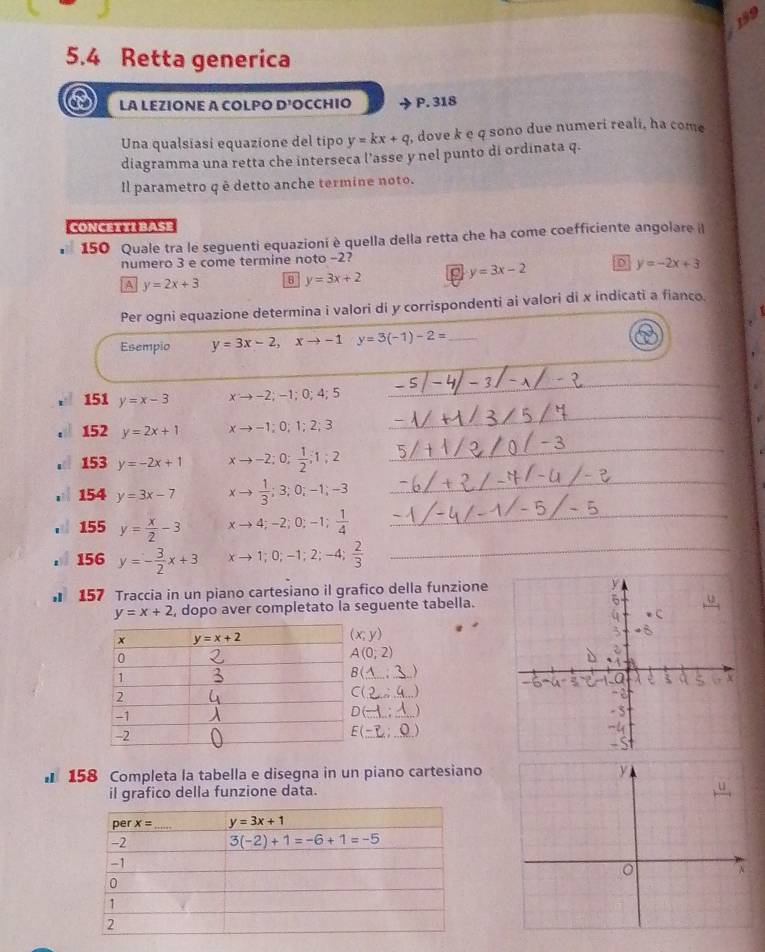 189
5.4 Retta generica
LA LEZIONE A COLPO D'OCCHIO → P. 318
Una qualsiasi equazione del tipo y = kx + q, dove k e q sono due numeri reali, ha come
diagramma una retta che interseca l'asse y nel punto di ordinata q.
Il parametro q è detto anche termine noto.
CONCETTI BASE
150 Quale tra le seguenti equazioni è quella della retta che ha come coefficiente angolare il
numero 3 e come termine noto -2?
A y = 2x + 3 B y = 3x + 2 C y = 3x - 2 D y = -2x + 3
Per ogni equazione determina i valori di y corrispondenti ai valori di x indicati a fianco.
Esempio y = 3x - 2, x → -1 y = 3(-1) - 2 = ____
151 y = x - 3 x → -2; -1; 0; 4; 5 -5/-4/-3/-1/-2
152 y = 2x + 1 x → -1; 0; 1; 2; 3 -1/+1/3/5/7
153 y = -2x + 1 x → -2; 0; 1/2; 1; 2 5/+1/2/0/-3
154 y = 3x - 7 x → 1/3; 3; 0; -1; -3 -6/+2/-7/-4/-2
155 y = x/2 - 3 x → 4; -2; 0; -1; 1/4 -1/-4/-1/-5/-5
156 y = -3/2 x + 3 x → 1; 0; -1; 2; -4; 2/3
157 Traccia in un piano cartesiano il grafico della funzione
y = x + 2, dopo aver completato la seguente tabella.
x y = x + 2 (x; y)
0 2 A(0; 2)
1 3 B(1; 3)
2 4 C(2; 4)
-1 1 D(-1; 1)
-2 0 E(-2; 0)
y
u
5
4 C
3 B
2
D 1
-6 -4 -3 -2 -1 0 1 2 3 4 5 6 x
-2
-3
-4
-5
158 Completa la tabella e disegna in un piano cartesiano
il grafico della funzione data.
per x = ...... y = 3x + 1
-2 3(-2) + 1 = -6 + 1 = -5
-1
0
1
2
y
u
O x